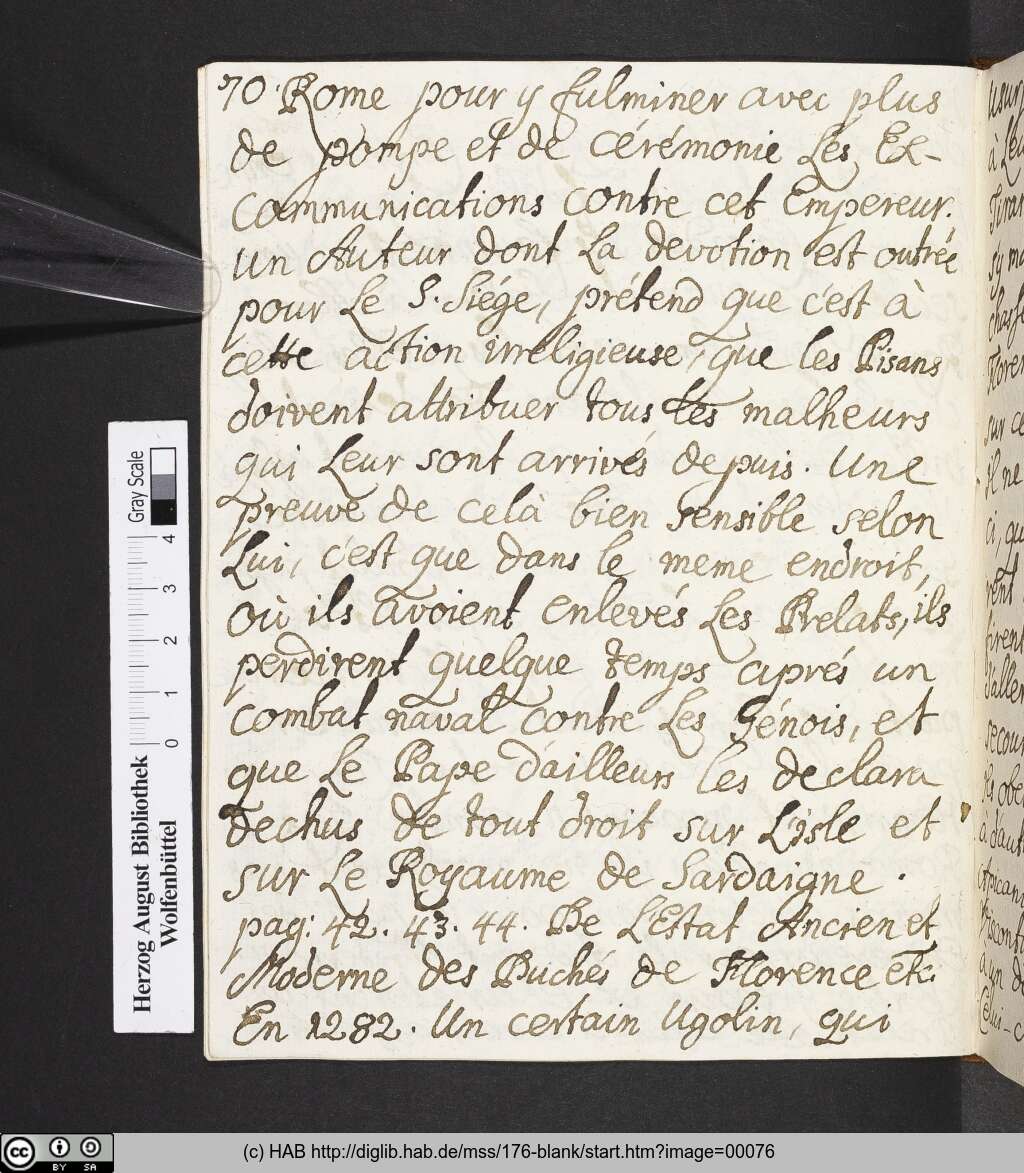 70. Rome pour y fulminer avec plus
de pompe et de cérémonie Les Ex-
communications contre cet Empereur.
un Auteur dont La devotion est outrée
pour Le S. Siége, prétend que c'est à
cette action irreligieuse, que les Pisans
doivent attribuer tous les malheurs
qui Leur sont arrivés depuis. Une
preuve de celà bien sensible selon
Lui, c'est que dans le meme endroit,
où ils avoient enlevés Les Prelats, ils
perdirent quelque temps aprés un
combat naval contre Les Génois, et
que Le Pape d'ailleurs les declara
dechus de tout droit sur L'isle et
sur Le Royaume de Sardaigne.
pag: 42. 43. 44. De L'Estat Ancien et
Moderne des Duchés de Florence etc:
En 1282. Un certain Ugolin, qui
Herzog August Bibliothek
Wolfenbüttel
Gray Scale
0 1 2 3 4
CC BY SA
(c) HAB http://diglib.hab.de/mss/176-blank/start.htm?image=00076